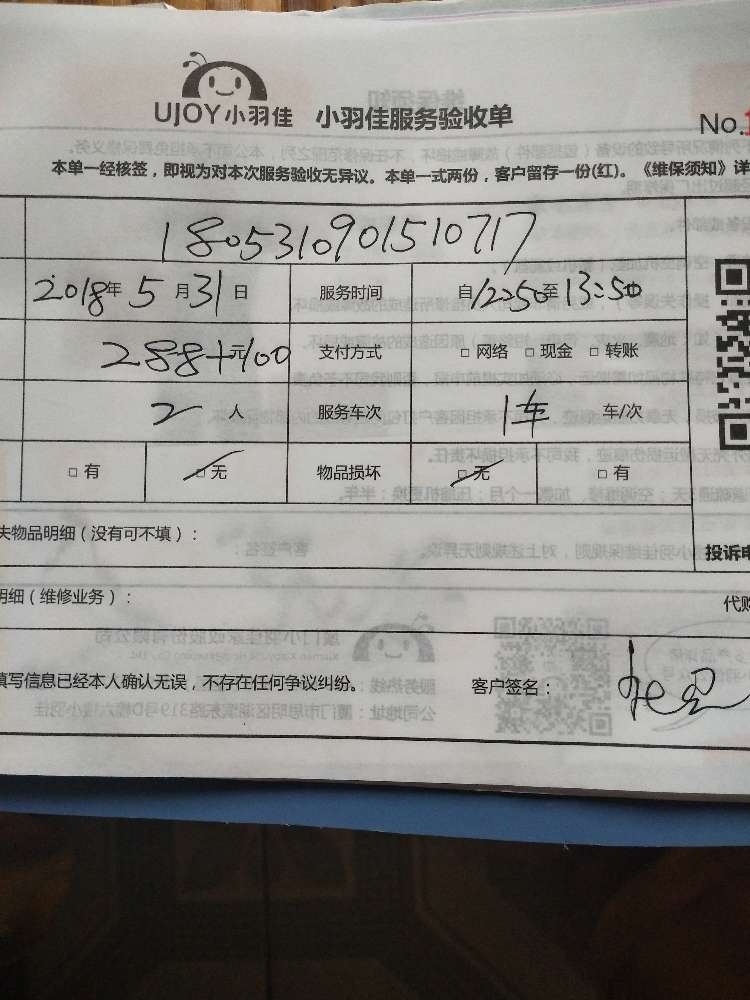 UJOY小羽佳 小羽佳服务验收单
No.1
本单一经核签，即视为对本次服务验收无异议。本单一式两份，客户留存一份(红)。《维保须知》详
1805310901510717
2018年5月31日 服务时间 自12:50至13:50
288+元100 支付方式 □网络 □现金 □转账
2人 服务车次 1车 车/次
□有 □无 物品损坏 □无 □有
失物品明细（没有可不填）：
投诉电
明细（维修业务）：
代购
填写信息已经本人确认无误，不存在任何争议纠纷。 客户签名：